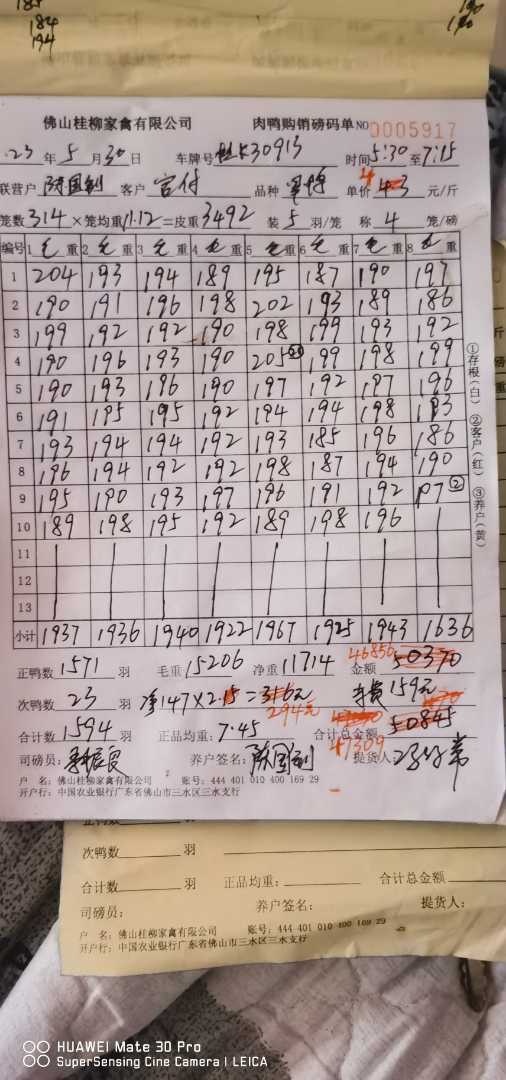 185
184
194
190
190
佛山桂柳家禽有限公司 肉鸭购销磅码单 NO 0005917
23年5月30日 车牌号 30913 时间5:30至7:15
联营户 陈国钊 客户 品种 单价 4 元/斤
笼数314×笼均重11.12=皮重3492 装5羽/笼 称4笼/磅
编号 1 毛重 2 毛重 3 毛重 4 毛重 5 毛重 6 毛重 7 毛重 8 毛重
1 204 193 194 189 195 187 190 197
2 190 191 196 198 202 193 189 186
3 199 192 192 190 198 199 193 192
4 190 196 193 90 205 199 198 199
5 190 193 186 190 197 192 187 196
6 191 195 195 192 194 194 198 183
7 193 194 194 192 193 185 196 186
8 196 194 192 192 198 187 194 190
9 195 190 193 197 196 191 192 ②
10 189 198 195 192 189 198 196
11
12
13
小计 1937 1936 1940 1922 1967 1925 1943 1636
正鸭数1571羽 毛重15206 净重11714 金额 46856 50370
次鸭数23羽 净147×2.15=316元 294元 159元
合计数1594羽 正品均重:7.45 合计总金额 50845 47309
司磅员: 养户签名:陈国钊 提货人:
户 名:佛山桂柳家禽有限公司 账号:444 401 010 400 169 29
开户行:中国农业银行广东省佛山市三水区三水支行
①存根(白) ②客户(红) ③养户(黄)
斤
磅
重
正鸭数 羽
次鸭数 羽
合计数 羽 正品均重: 合计总金额
司磅员: 养户签名: 提货人:
户 名:佛山桂柳家禽有限公司 账号:444 401 010 400 169 29
开户行:中国农业银行广东省佛山市三水区三水支行
HUAWEI Mate 30 Pro
SuperSensing Cine Camera | LEICA